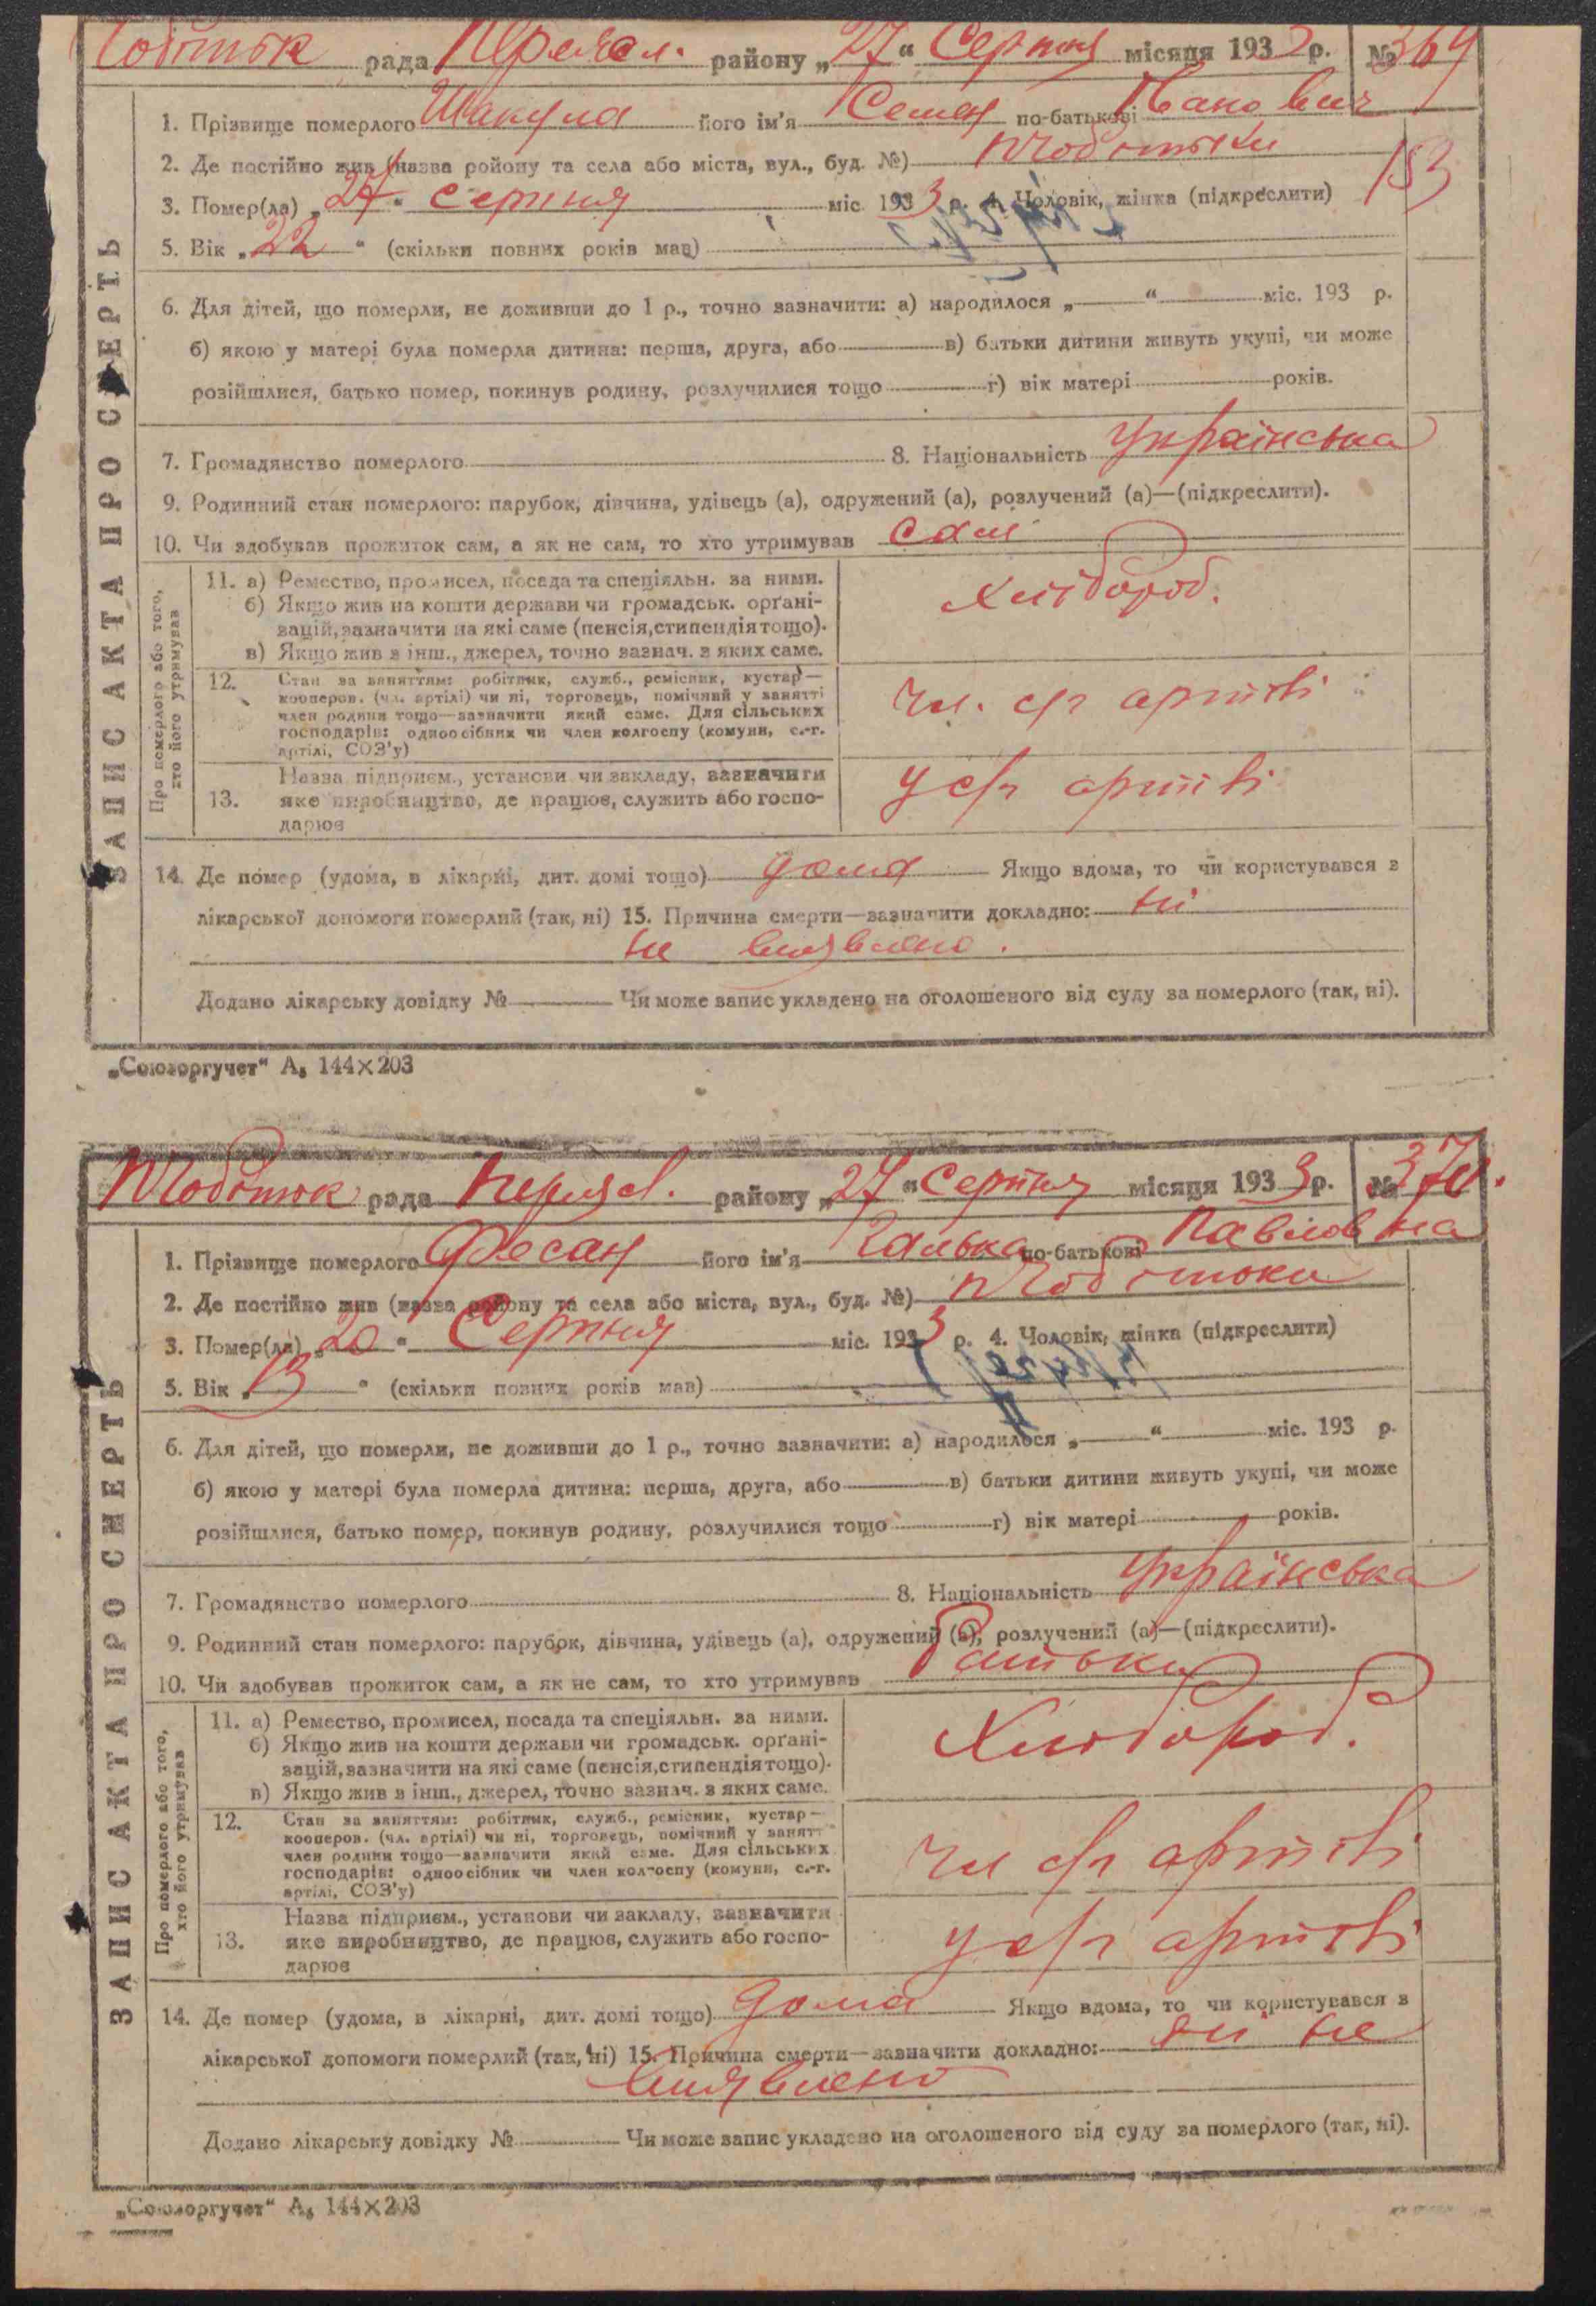 рада Переясл. району „27“ Серпня місяця 1933 р. № 369
1. Прізвище померлого Шакула його ім'я Семен по-батькові Іванович
2. Де постійно жив (назва району та села або міста, вул., буд. №)
183
3. Помер(ла) „27“ серпня міс. 1933 р. 4. Чоловік, жінка (підкреслити)
5. Вік „22“ (скільки повних років мав)
6. Для дітей, що померли, не доживши до 1 р., точно зазначити: а) народилося „ “ міс. 193 р.
б) якою у матері була померла дитина: перша, друга, або в) батьки дитини живуть укупі, чи може
розійшлися, батько помер, покинув родину, розлучилися тощо г) вік матері років.
7. Громадянство померлого 8. Національність українська
9. Родинний стан померлого: парубок, дівчина, удівець (а), одружений (а), розлучений (а)—(підкреслити).
10. Чи здобував прожиток сам, а як не сам, то хто утримував сам
11. а) Ремество, промисел, посада та спеціяльн. за ними.
б) Якщо жив на кошти держави чи громадськ. орґані-
зацій, зазначити на які саме (пенсія, стипендія тощо).
в) Якщо жив з інш., джерел, точно зазнач. з яких саме.
Хлібороб.
12. Стан за заняттям: робітник, служб., ремісник, кустар—
кооперов. (чл. артілі) чи ні, торговець, помічний у занятті
член родини тощо—зазначити який саме. Для сільських
господарів: одноосібник чи член колгоспу (комуни, с.-г.
артілі, СОЗ'у)
чл. с/г артілі
Назва підприєм., установи чи закладу, зазначити
13. яке виробництво, де працює, служить або госпо-
дарює
у с/г артілі
14. Де помер (удома, в лікарні, дит. домі тощо) дома Якщо вдома, то чи користувався з
лікарської допомоги померлий (так, ні) 15. Причина смерти—зазначити докладно: ні
не виявлено.
Додано лікарську довідку № Чи може запис укладено на оголошеного від суду за померлого (так, ні).
ЗАПИС АКТА ПРО СМЕРТЬ
Про померлого або того,
хто його утримував
„Союзоргучет“ А₅ 144×203
рада Переясл. району „27“ Серпня місяця 1933 р. № 370.
1. Прізвище померлого Фесан його ім'я Галька по-батькові Павловна
2. Де постійно жив (назва району та села або міста, вул., буд. №)
3. Помер(ла) „20“ Серпня міс. 1933 р. 4. Чоловік, жінка (підкреслити)
5. Вік „13“ (скільки повних років мав)
6. Для дітей, що померли, не доживши до 1 р., точно зазначити: а) народилося „ “ міс. 193 р.
б) якою у матері була померла дитина: перша, друга, або в) батьки дитини живуть укупі, чи може
розійшлися, батько помер, покинув родину, розлучилися тощо г) вік матері років.
7. Громадянство померлого 8. Національність українська
9. Родинний стан померлого: парубок, дівчина, удівець (а), одружений (а), розлучений (а)—(підкреслити).
10. Чи здобував прожиток сам, а як не сам, то хто утримував Батьки
11. а) Ремество, промисел, посада та спеціяльн. за ними.
б) Якщо жив на кошти держави чи громадськ. орґані-
зацій, зазначити на які саме (пенсія, стипендія тощо).
в) Якщо жив з інш., джерел, точно зазнач. з яких саме.
Хлібороб.
12. Стан за заняттям: робітник, служб., ремісник, кустар—
кооперов. (чл. артілі) чи ні, торговець, помічний у занятт
член родини тощо—зазначити який саме. Для сільських
господарів: одноосібник чи член колгоспу (комуни, с.-г.
артілі, СОЗ'у)
чл с/г артілі
Назва підприєм., установи чи закладу, зазначити
13. яке виробництво, де працює, служить або госпо-
дарює
у с/г артілі
14. Де помер (удома, в лікарні, дит. домі тощо) дома Якщо вдома, то чи користувався з
лікарської допомоги померлий (так, ні) 15. Причина смерти—зазначити докладно: ні не
виявлено
Додано лікарську довідку № Чи може запис укладено на оголошеного від суду за померлого (так, ні).
ЗАПИС АКТА ПРО СМЕРТЬ
Про померлого або того,
хто його утримував
„Союзоргучет“ А₅ 144×203